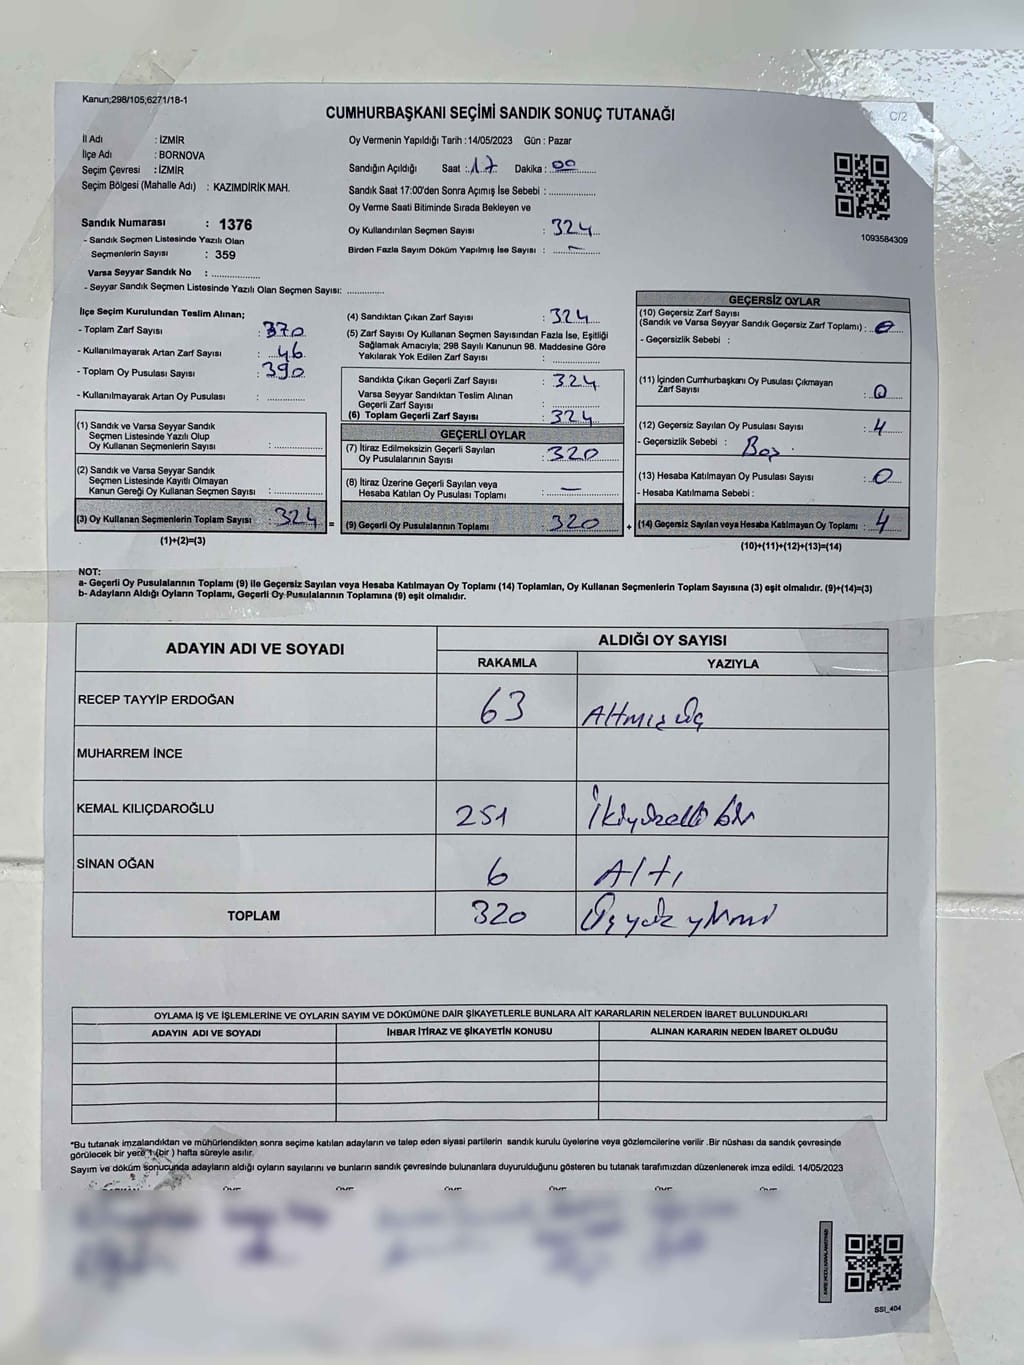 Kanun;298/105,6271/18-1
CUMHURBAŞKANI SEÇİMİ SANDIK SONUÇ TUTANAĞI
C/2
İl Adı : İZMİR
İlçe Adı : BORNOVA
Seçim Çevresi : İZMİR
Seçim Bölgesi (Mahalle Adı) : KAZIMDİRİK MAH.
Sandık Numarası : 1376
- Sandık Seçmen Listesinde Yazılı Olan
Seçmenlerin Sayısı : 359
Varsa Seyyar Sandık No : ..............
- Seyyar Sandık Seçmen Listesinde Yazılı Olan Seçmen Sayısı: ............
Oy Vermenin Yapıldığı Tarih : 14/05/2023 Gün : Pazar
Sandığın Açıldığı Saat : 17 Dakika : 00
Sandık Saat 17:00'den Sonra Açımış İse Sebebi : ..............
Oy Verme Saati Bitiminde Sırada Bekleyen ve
Oy Kullandırılan Seçmen Sayısı : 324
Birden Fazla Sayım Döküm Yapılmış İse Sayısı : –
1093584309
İlçe Seçim Kurulundan Teslim Alınan;
- Toplam Zarf Sayısı : 370
- Kullanılmayarak Artan Zarf Sayısı : 46
- Toplam Oy Pusulası Sayısı : 390
- Kullanılmayarak Artan Oy Pusulası : ............
(1) Sandık ve Varsa Seyyar Sandık
Seçmen Listesinde Yazılı Olup
Oy Kullanan Seçmenlerin Sayısı : ............
(2) Sandık ve Varsa Seyyar Sandık
Seçmen Listesinde Kayıtlı Olmayan
Kanun Gereği Oy Kullanan Seçmen Sayısı : ............
(3) Oy Kullanan Seçmenlerin Toplam Sayısı 324
(1)+(2)=(3)
(4) Sandıktan Çıkan Zarf Sayısı : 324
(5) Zarf Sayısı Oy Kullanan Seçmen Sayısından Fazla İse, Eşitliği
Sağlamak Amacıyla; 298 Sayılı Kanunun 98. Maddesine Göre
Yakılarak Yok Edilen Zarf Sayısı : ............
Sandıkta Çıkan Geçerli Zarf Sayısı : 324
Varsa Seyyar Sandıktan Teslim Alınan
Geçerli Zarf Sayısı : ............
(6) Toplam Geçerli Zarf Sayısı : 324
GEÇERLİ OYLAR
(7) İtiraz Edilmeksizin Geçerli Sayılan
Oy Pusulalarının Sayısı : 320
(8) İtiraz Üzerine Geçerli Sayılan veya
Hesaba Katılan Oy Pusulası Toplamı : –
= (9) Geçerli Oy Pusulalarının Toplamı : 320
GEÇERSİZ OYLAR
(10) Geçersiz Zarf Sayısı
(Sandık ve Varsa Seyyar Sandık Geçersiz Zarf Toplamı) : 0
- Geçersizlik Sebebi :
(11) İçinden Cumhurbaşkanı Oy Pusulası Çıkmayan
Zarf Sayısı : 0
(12) Geçersiz Sayılan Oy Pusulası Sayısı : 4
- Geçersizlik Sebebi : Boş
(13) Hesaba Katılmayan Oy Pusulası Sayısı : 0
- Hesaba Katılmama Sebebi :
+ (14) Geçersiz Sayılan veya Hesaba Katılmayan Oy Toplamı : 4
(10)+(11)+(12)+(13)=(14)
NOT:
a- Geçerli Oy Pusulalarının Toplamı (9) ile Geçersiz Sayılan veya Hesaba Katılmayan Oy Toplamı (14) Toplamları, Oy Kullanan Seçmenlerin Toplam Sayısına (3) eşit olmalıdır. (9)+(14)=(3)
b- Adayların Aldığı Oyların Toplamı, Geçerli Oy Pusulalarının Toplamına (9) eşit olmalıdır.
ADAYIN ADI VE SOYADI
ALDIĞI OY SAYISI
RAKAMLA YAZIYLA
RECEP TAYYİP ERDOĞAN 63 Altmış Üç
MUHARREM İNCE
KEMAL KILIÇDAROĞLU 251 İkiyüzelli bir
SİNAN OĞAN 6 Altı
TOPLAM 320 Üçyüz yirmi
OYLAMA İŞ VE İŞLEMLERİNE VE OYLARIN SAYIM VE DÖKÜMÜNE DAİR ŞİKAYETLERLE BUNLARA AİT KARARLARIN NELERDEN İBARET BULUNDUKLARI
ADAYIN ADI VE SOYADI İHBAR İTİRAZ VE ŞİKAYETİN KONUSU ALINAN KARARIN NEDEN İBARET OLDUĞU
*Bu tutanak imzalandıktan ve mühürlendikten sonra seçime katılan adayların ve talep eden siyasi partilerin sandık kurulu üyelerine veya gözlemcilerine verilir .Bir nüshası da sandık çevresinde
görülecek bir yere 1 (bir ) hafta süreyle asılır.
Sayım ve döküm sonucunda adayların aldığı oyların sayılarını ve bunların sandık çevresinde bulunanlara duyurulduğunu gösteren bu tutanak tarafımızdan düzenlenerek imza edildi. 14/05/2023
SSI_404